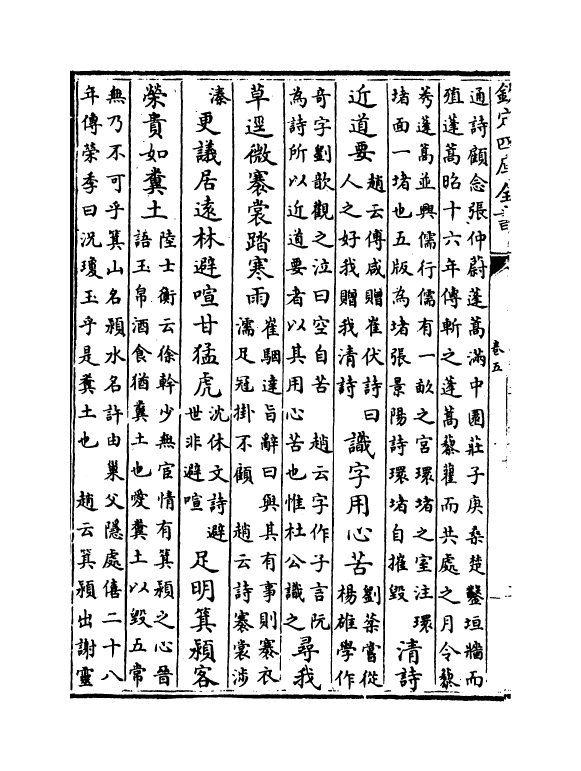 欽定四庫全書
卷五
通詩顧念張仲蔚蓬蒿滿中園莊子庚桑楚鑿垣牆而
殖蓬蒿昭十六年傳斬之蓬蒿藜藋而共處之月令藜
莠蓬蒿並興儒行儒有一畝之宮環堵之室注環
堵面一堵也五版為堵張景陽詩環堵自摧毀
清詩
近道要
趙云傅咸贈崔伏詩曰
人之好我贈我清詩
識字用心苦
劉棻嘗從
楊雄學作
奇字劉歆觀之泣曰空自苦 趙云字作子言阮
為詩所以近道要者以其用心苦也惟杜公識之
尋我
草逕微褰裳踏寒雨
崔駰達旨辭曰與其有事則褰衣
濡足冠掛不顧 趙云詩褰裳涉
溱
更議居遠林避喧甘猛虎
沈休文詩避
世非避喧
足明箕潁客
榮貴如糞土
陸士衡云徐幹少無官情有箕潁之心晉
語玉帛酒食猶糞土也愛糞土以毀五常
無乃不可乎箕山名潁水名許由巢父隱處僖二十八
年傳榮季曰況瓊玉乎是糞土也 趙云箕潁出謝靈